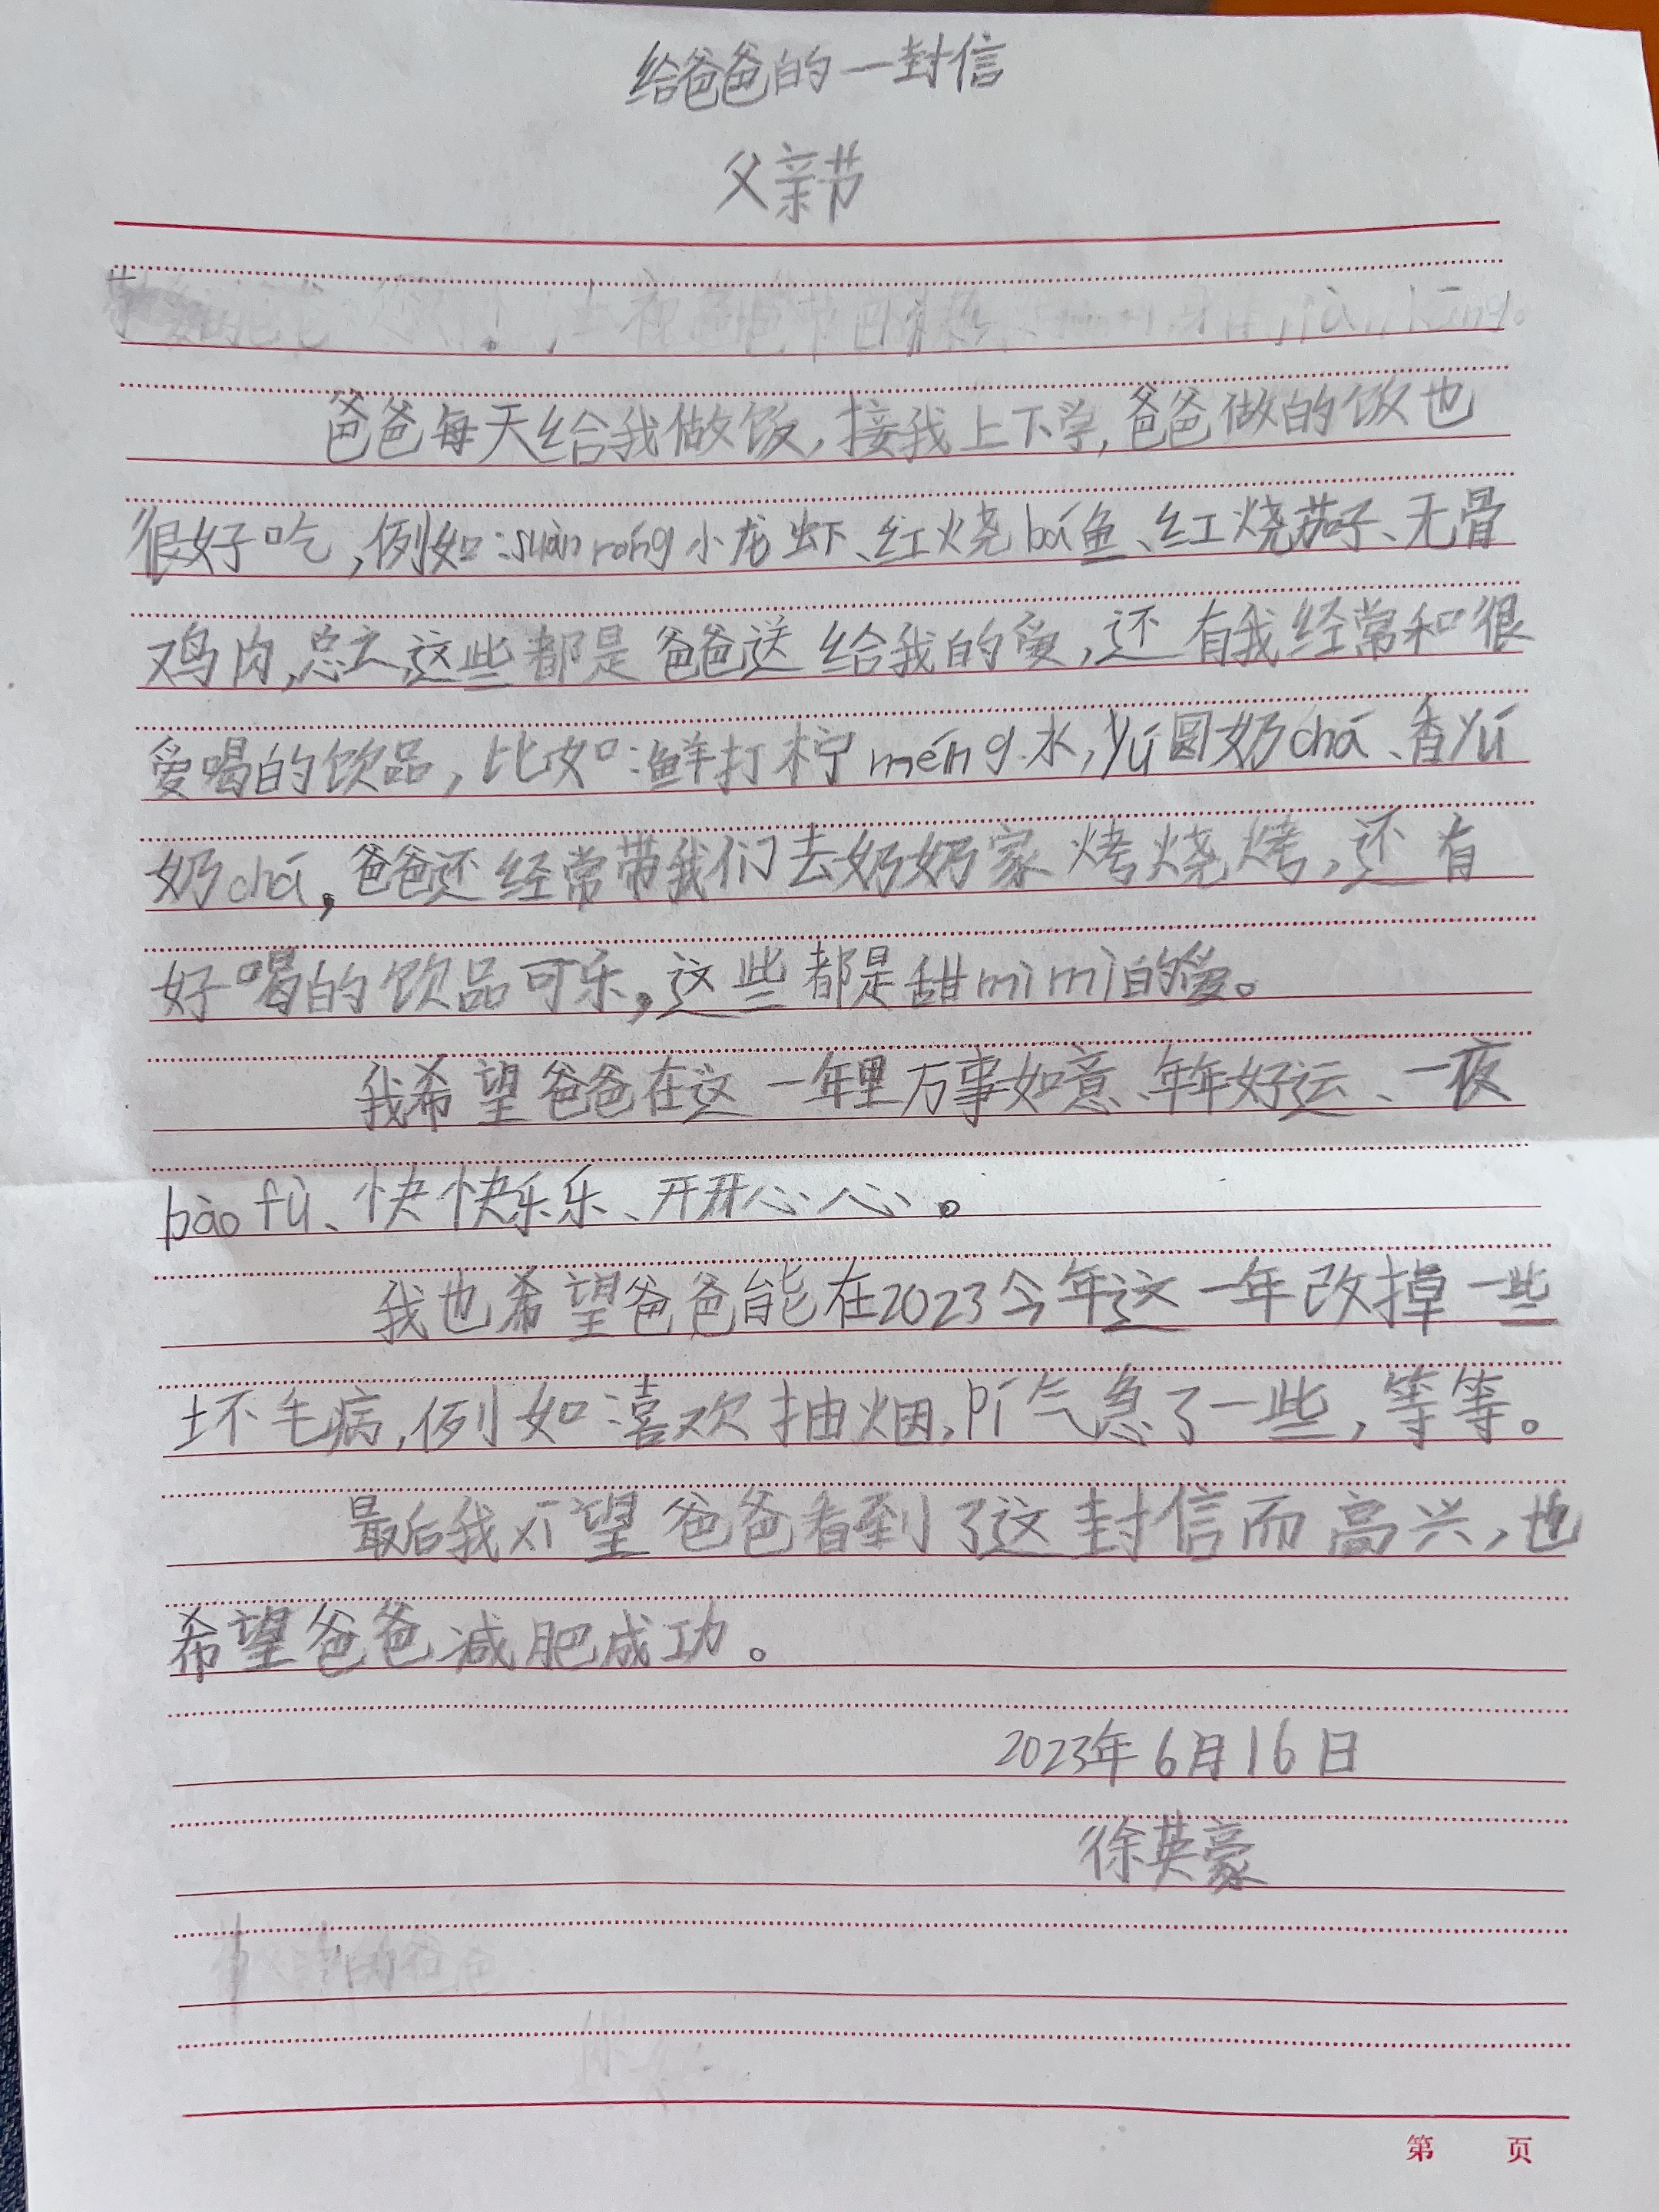 给爸爸的一封信
父亲节
爸爸每天给我做饭,接我上下学,爸爸做的饭也
很好吃,例如:suàn róng小龙虾、红烧bá鱼、红烧茄子、无骨
鸡肉,总之这些都是爸爸送给我的爱,还有我经常和很
爱喝的饮品,比如:鲜打柠méng水,yú圆奶chá、香yú
奶chá,爸爸还经常带我们去奶奶家烤烧烤,还有
好喝的饮品可乐,这些都是甜mì mì的爱。
我希望爸爸在这一年里万事如意、年年好运、一夜
bào fù、快快乐乐、开开心心。
我也希望爸爸能在2023今年这一年改掉一些
坏毛病,例如:喜欢抽烟,pí气急了一些,等等。
最后我xī望爸爸看到了这封信而高兴,也
希望爸爸减肥成功。
2023年6月16日
徐英豪
第 页